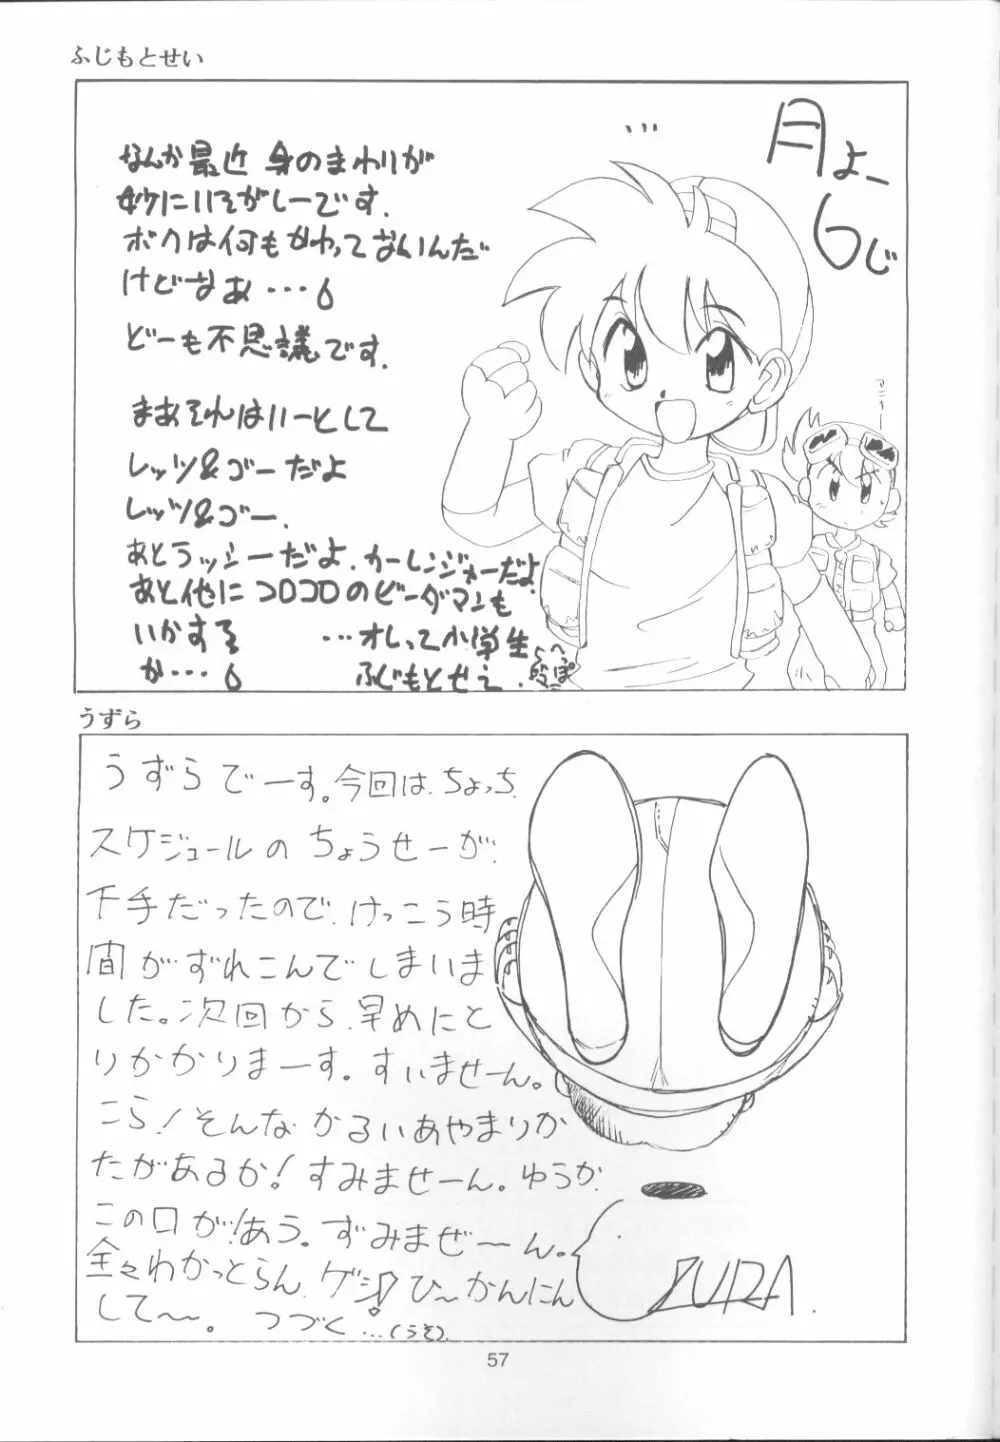 ふじもとせい
月よー
6じ
なんか最近 身のまわりが
妙にいそがしーです.
ボクは何もかわってないんだ
けどなぁ・・・
どーも不思議です.
まあそれはいーとして
レッツ&ゴーだよ
レッツ&ゴー.
あとラッシーだよ.カーレンジャーだよ.
あと他にコロコロのビーダマンも
いかすする
か・・・
・・・オレって小学生
ふじもとせえ.
うずら
うずらでーす。今回は.ちょっち.
スケジュールのちょうせーが.
下手だったので.けっこう時
間がずれこんでしまいま
した。次回から.早めにと
りかかりまーす。すいませーん。
こら!そんなかるいあやまりか
たがあるか!すみませーん。ゆうか.
この口が!あう。ずみまぜ〜ん。
全々わかっとらん.ゲシ!ひ〜かんにん
して〜〜。つづく...(うそ).
ZURA.
57